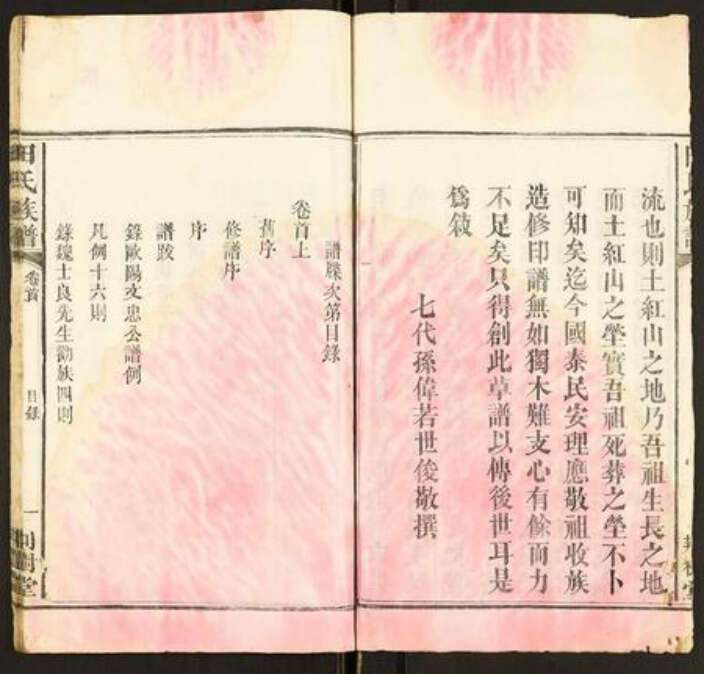 流也則土紅山之地乃吾祖生長之地
而土紅山之塋實吾祖死葬之塋不卜
可知矣迄今國泰民安理應敬祖收族
造修印譜無如獨木難支心有餘而力
不足矣只得創此草譜以傳後世耳是
為敘
七代孫偉若世俊敬撰
譜牒次第目錄
卷首上
舊序
修譜序
序
譜跋
錄歐陽文忠公譜例
凡例十六則
錄魏士良先生勸族四則
田氏族譜
卷首
目錄
一
荆樹堂